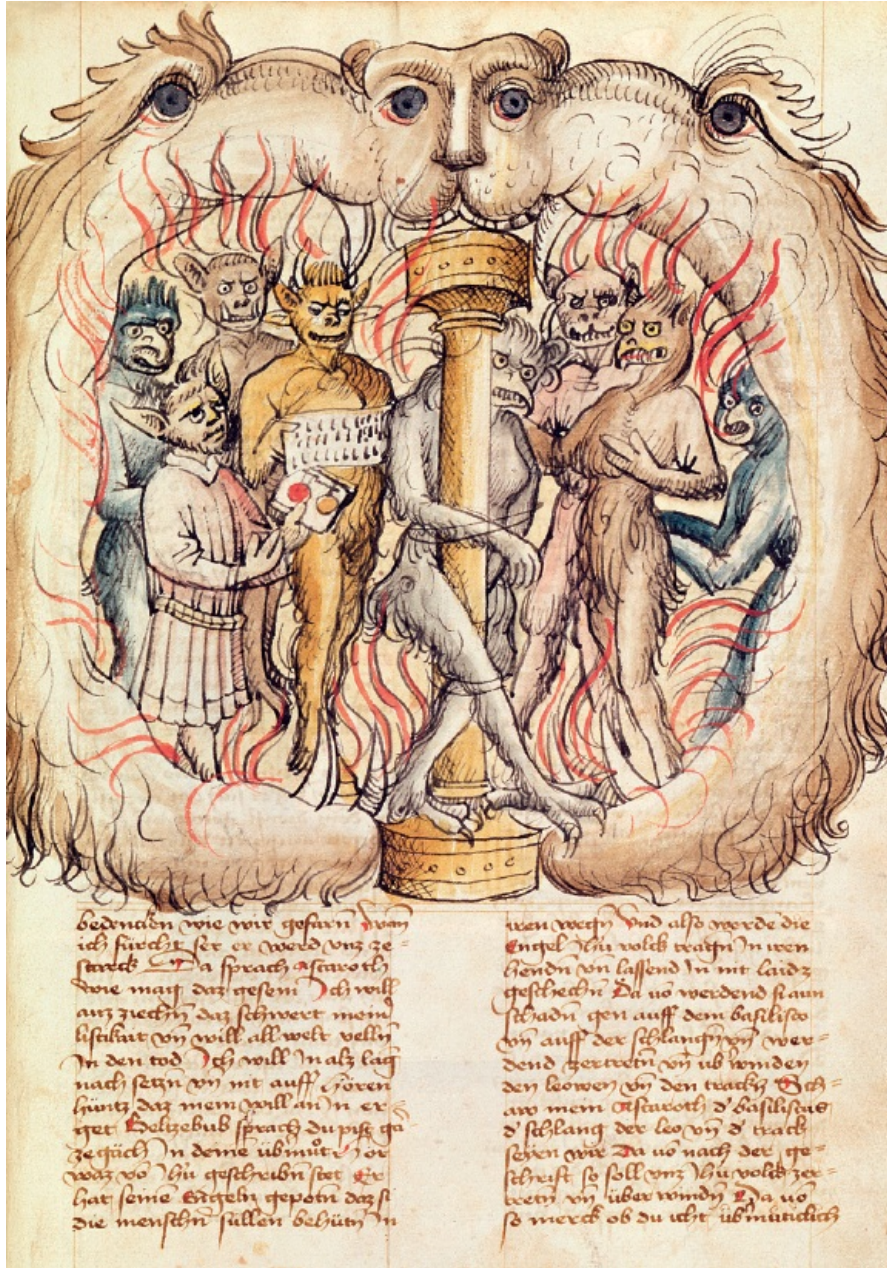 bedencken wie wir gefarn wan
ich fürcht ser er werd vnz ze=
starck Da sprach Astaroth
wie mag daz gesein Ich will
auz ziechn daz schwert mein
listikait vn̄ will all welt velln
In den tod Ich will In alz lag
nach setzn vn̄ nit auff hören
hüntz daz mein will an In er=
get Belizebub sprach du pist ga
ze gäch In deine übmůt hor
waz vō Ihū geschribn stet Er
hat seinē Engeln gepotn daz si
die menschn̄ süllen behütn̄ In
iren wegn̄ Vnd also werde die
Engel Ihū volck tragn̄ In iren
hendn̄ vn̄ lassend In nit laidz
geschechn̄ Da vō werdend si aun
schadn̄ gen auff dem basilisco
vn̄ auff der schlangn̄ vn̄ wer=
dend zertretn̄ vn̄ übwinden
den leowen vn̄ den trackn̄ Sch=
aw mein Astaroth d' basiliscus
d' schlang der leo vn̄ d' track
seyen wir Da vō nach der ge=
schrift so soll vnz Ihū volck zer=
tretn̄ vn̄ über windn̄ Da vō
so merck ob du icht übmüticlich